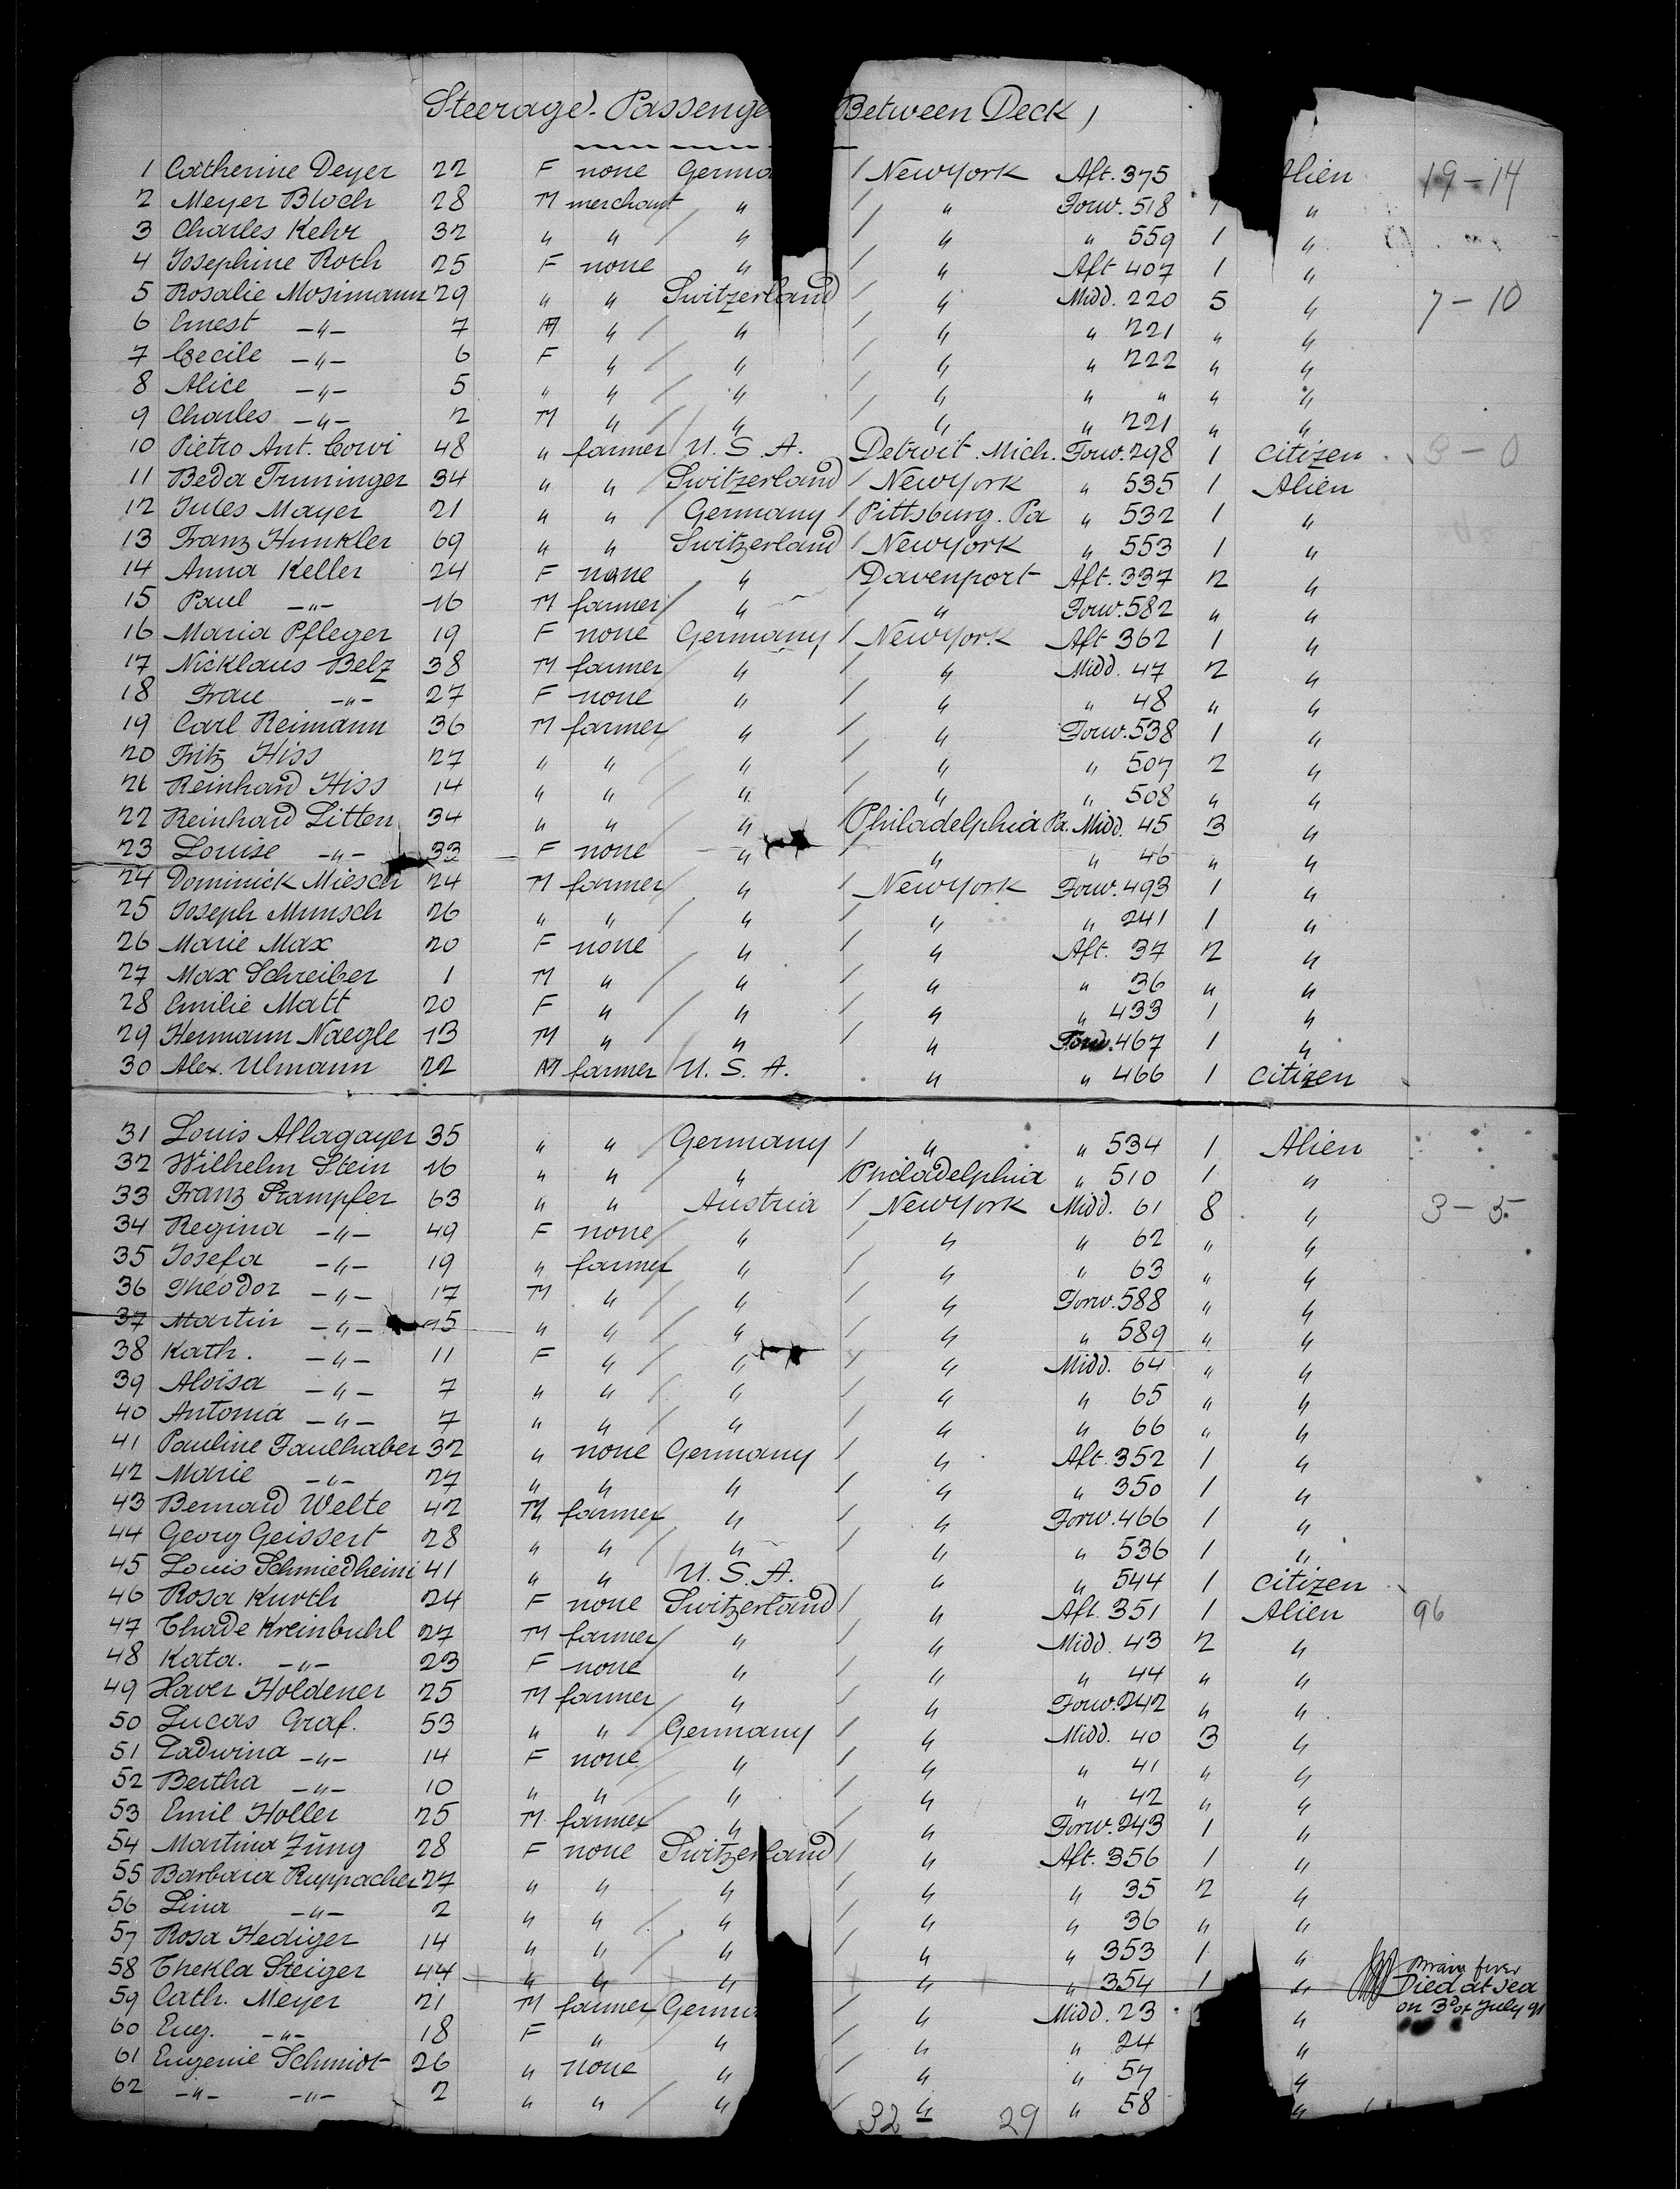 Steerage - Passenge Between Deck,
1 Catherine Deyer 22 F none Germa / New York Aft. 375 Alien 19-14
2 Meyer Bloch 28 M merchant " / " Forw. 518 1 "
3 Charles Kehr 32 " " / " / " " 559 1 "
4 Josephine Roth 25 F none " / " Aft 407 1 "
5 Rosalie Mosimann 29 " " Switzerland / " Midd. 220 5 " 7-10
6 Ernest -"- 7 M " / " / " " 221 " "
7 Cecile -"- 6 F " / " / " " 222 " "
8 Alice -"- 5 " " / " / " " " " "
9 Charles -"- 2 M " / " / " " 221 " "
10 Pietro Ant. Corvi 48 " farmer U. S. A. Detroit Mich. Forw. 298 1 citizen
11 Beda Truninger 34 " " Switzerland / New York " 535 1 Alien
12 Jules Mayer 21 " " / Germany / Pittsburg. Pa " 532 1 "
13 Franz Hunkler 69 " " Switzerland / New York " 553 1 "
14 Anna Keller 24 F none " / Davenport Aft. 337 2 "
15 Paul -"- 16 M farmer / " / " Forw. 582 " "
16 Maria Pfleger 19 F none Germany / New York Aft 362 1 "
17 Nicklaus Belz 38 M farmer " / " Midd. 47 2 "
18 Frau -"- 27 F none " / " " 48 " "
19 Carl Reimann 36 M farmer / " / " Forw. 538 1 "
20 Fritz Hiss 27 " " / " / " " 507 2 "
21 Reinhard Hiss 14 " " / " / " " 508 " "
22 Reinhard Litten 34 " " / " Philadelphia Pa. Midd. 45 3 "
23 Louise -"- 33 F none " / " " 46 " "
24 Dominick Miesch 24 M farmer / " / New York Forw. 493 1 "
25 Joseph Munsch 26 " " / " / " " 241 1 "
26 Marie Max 20 F none " / " Aft. 37 2 "
27 Max Schreiber 1 M " / " / " " 36 " "
28 Emilie Matt 20 F " / " / " " 433 1 "
29 Hermann Naegle 13 M " / " / " Forw. 467 1 "
30 Alex. Ulmann 22 M farmer U. S. A. " " 466 1 citizen
31 Louis Allagayer 35 " " / Germany / " " 534 1 Alien
32 Wilhelm Stein 16 " " / " Philadelphia " 510 1 "
33 Franz Stampfer 63 " " / Austria / New York Midd. 61 8 " 3-5
34 Regina -"- 49 F none / " / " " 62 " "
35 Josefa -"- 19 " farmer " / " " 63 " "
36 Theodor -"- 17 M " / " / " Forw. 588 " "
37 Martin -"- 15 " " / " / " " 589 " "
38 Kath. -"- 11 F " / " / " Midd. 64 " "
39 Aloisa -"- 7 " " / " / " " 65 " "
40 Antonia -"- 7 " " / " / " " 66 " "
41 Pauline Faulhaber 32 " none Germany / " Aft. 352 1 "
42 Marie -"- 27 " " / " / " " 350 1 "
43 Bernard Welte 42 M farmer " / " Forw. 466 1 "
44 Georg Geissert 28 " " / " / " " 536 1 "
45 Louis Schmiedheini 41 " " U. S. A. " " 544 1 citizen
46 Rosa Kurth 24 F none Switzerland / " Aft. 351 1 Alien 96
47 Thade Kreinbuhl 27 M farmer / " / " Midd. 43 2 "
48 Kata. -"- 23 F none " / " " 44 " "
49 Xaver Holdener 25 M farmer / " / " Forw. 242 " "
50 Lucas Graf. 53 " " / Germany / " Midd. 40 3 "
51 Ladwina -"- 14 F none " / " " 41 " "
52 Bertha -"- 10 " " / " / " " 42 " "
53 Emil Holler 25 M farmer " / " Forw. 243 1 "
54 Martina Züng 28 F none Switzerland / " Aft. 356 1 "
55 Barbara Ruppacher 27 " " / " / " " 35 2 "
56 Lina -"- 2 " " / " / " " 36 " "
57 Rosa Hediger 14 " " / " / " " 353 1 "
58 Thekla Steiger 44 " " / " / " " 354 1 " Brain fever Died at sea on 3d of July 91
59 Cath. Meyer 21 M farmer Germa " Midd. 23 "
60 Eug. -"- 18 F " / " " " 24 "
61 Eugenie Schmidt 26 " none " / " " 57 "
62 -"- -"- 2 " " / " " " 58 "
32 29